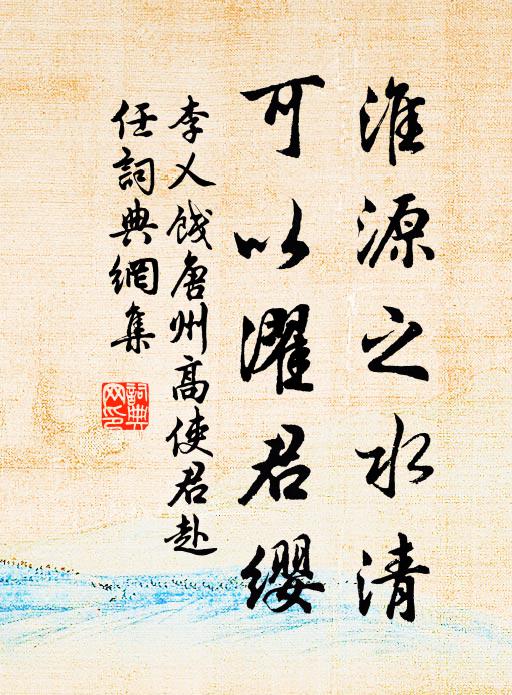 淮源之水清
可以濯君缨
李乂饯唐州高使君赴
任詞典網集
詞典
网印